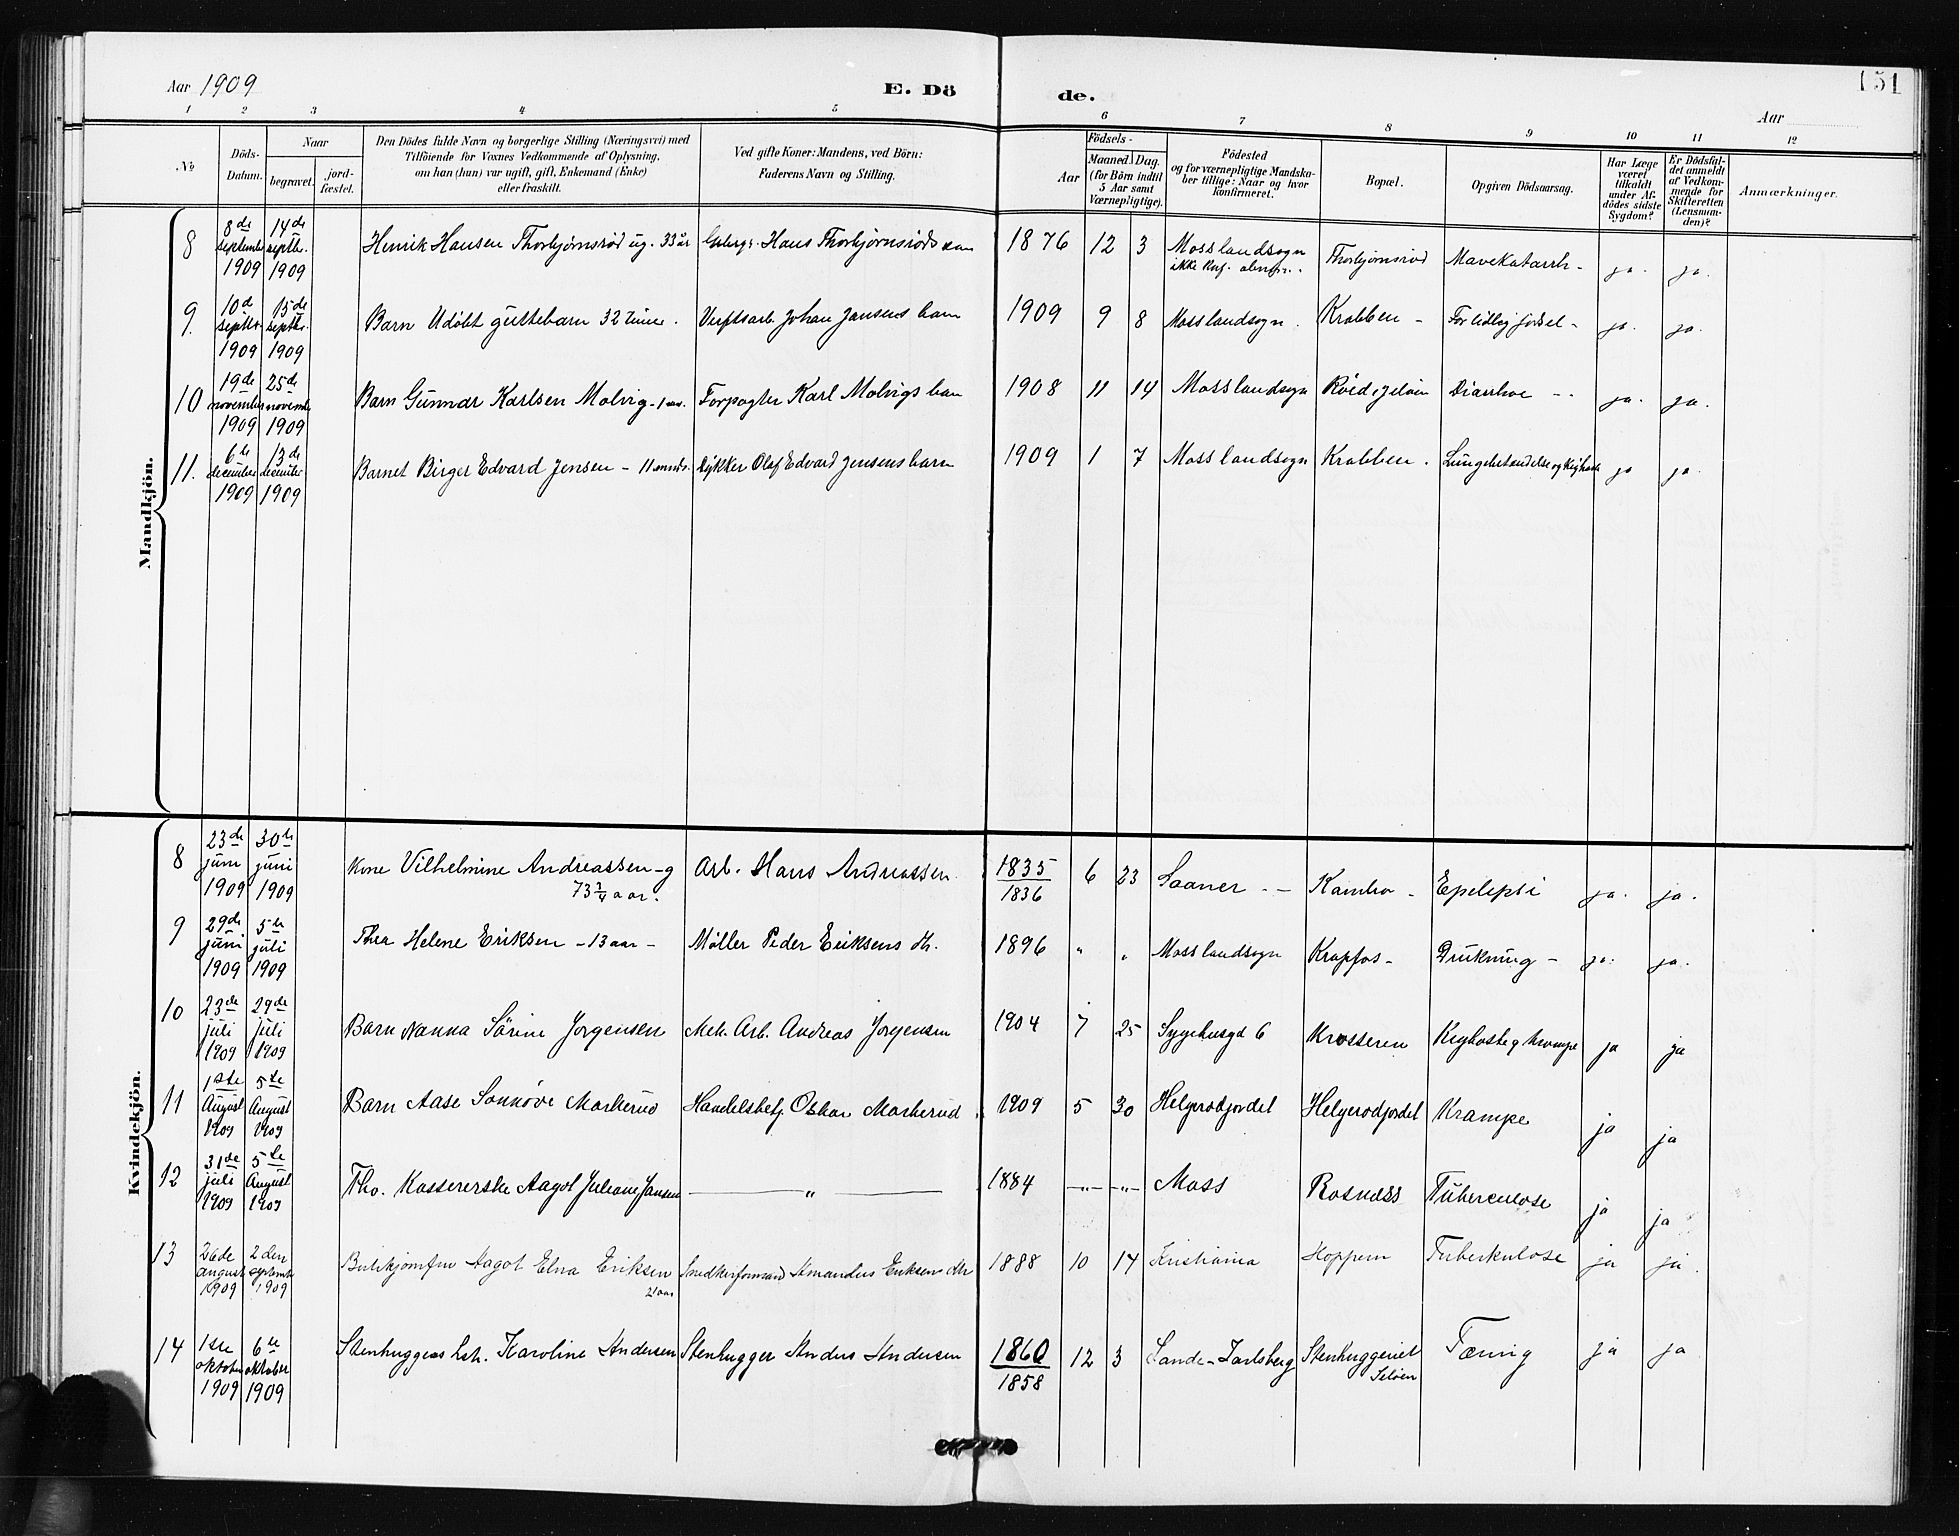 Aar 1909
E. Dö
de.
151
Aar
1 2 3 4 5 6 7 8 9 10 11 12
No
Döds-
Datum.
Naar
begravet.
jord-
fæstet.
Den Dödes fulde Navn og borgerlige Stilling (Næringsvei) med
Tilföiende for Voxnes Vedkommende af Oplysning,
om han (hun) var ugift, gift, Enkemand (Enke)
eller fraskilt.
Ved gifte Koner: Mandens, ved Börn:
Faderens Navn og Stilling.
Födsels-
Aar
Maaned. Dag.
(for Börn indtil
5 Aar samt
Værnepligtige).
Födested
og for værnepligtige Mandska-
ber tillige: Naar og hvor
konfirmeret.
Bopæl.
Opgiven Dödsaarsag.
Har Læge
været
tilkaldt
under Af-
dödes sidste
Sygdom?
Er Dödsfal-
det anmeldt
af Vedkom-
mende for
Skifteretten
(Lensman-
den)?
Anmærkninger.
Mandkjön.
8 8de september 1909 14de septbr. 1909 Henrik Hansen Thorbjørnsrød ug. 33 år Hans Thorbjørnsrøds 1876 12 3 Moss landsogn ikke Thorbjørnsrød Mavekatarrh - ja. ja.
9. 10d septbr. 1909 15de septbr. 1909 Barn Udøbt guttebarn 32 timer. Verftsarb. Johan Jansens barn 1909 9 8 Moss landsogn. Krabben - For tidlig fødsel - ja. ja.
10 19de november 1909 25de novembr 1909 Barn Gunnar Karlsen Molvig - 1 aar. Forpagter Karl Molvigs barn 1908 11 14 Moss landsogn Røed, Jeløen Diarrhoe - ja. ja.
11. 6te december 1909 13de december 1909 Barnet Birger Edvard Jensen - 11 mnds. Dykker Olaf Edvard Jensens barn 1909 1 7 Moss landsogn Krabben. Lungebetændelse og Kighoste ja ja.
Kvindekjön.
8 23de juni 1909 30te juni 1909 Kone Vilhelmine Andreassen - g 73 1/4 aar. Arb. Hans Andreassen. 1835 1836 6 23 Saaner - Kambo - Epelepsi ja. ja.
9 29de juni 1909 5te juli 1909 Thea Helene Eriksen - 13 aar - Møller Peder Eriksens dt. 1896 " " Moss landsogn Krapfos - Drukning - ja. ja.
10 23de juli 1909 29de juli 1909 Barn Nanna Sörine Jørgensen Mek. Arb. Andreas Jørgensen 1904 7 25 Sygehusgd 6 Krosseren Kighoste og krampe ja ja
11 1ste August 1909 5te August 1909 Barn Aase Sonnöve Markerud Handelsbetj. Oskar Markerud. 1909 5 30 Helgerødjordet Helgerødjordet Krampe ja ja
12 31de juli 1909 5te August 1909 Fhv. Kassererske Aagot Juliane Jansen — " — 1884 -"- -"- Moss Rosnæss Tuberculose ja ja
13 26de august 1909 2den septembr 1909 Butikjomfru Aagot Elna Eriksen 21 aar Snedkerformand Amandus Eriksens dtr 1888 10 14 Kristiania Hoppern Tuberkulose ja ja.
14 1ste oktober 1909 6te oktober 1909 Stenhuggers hst. Karoline Andersen Stenhugger Anders Andersen 1860 1858 12 3 Sande - Jarlsberg Stenhuggeriet Jeløen Tæring ja ja